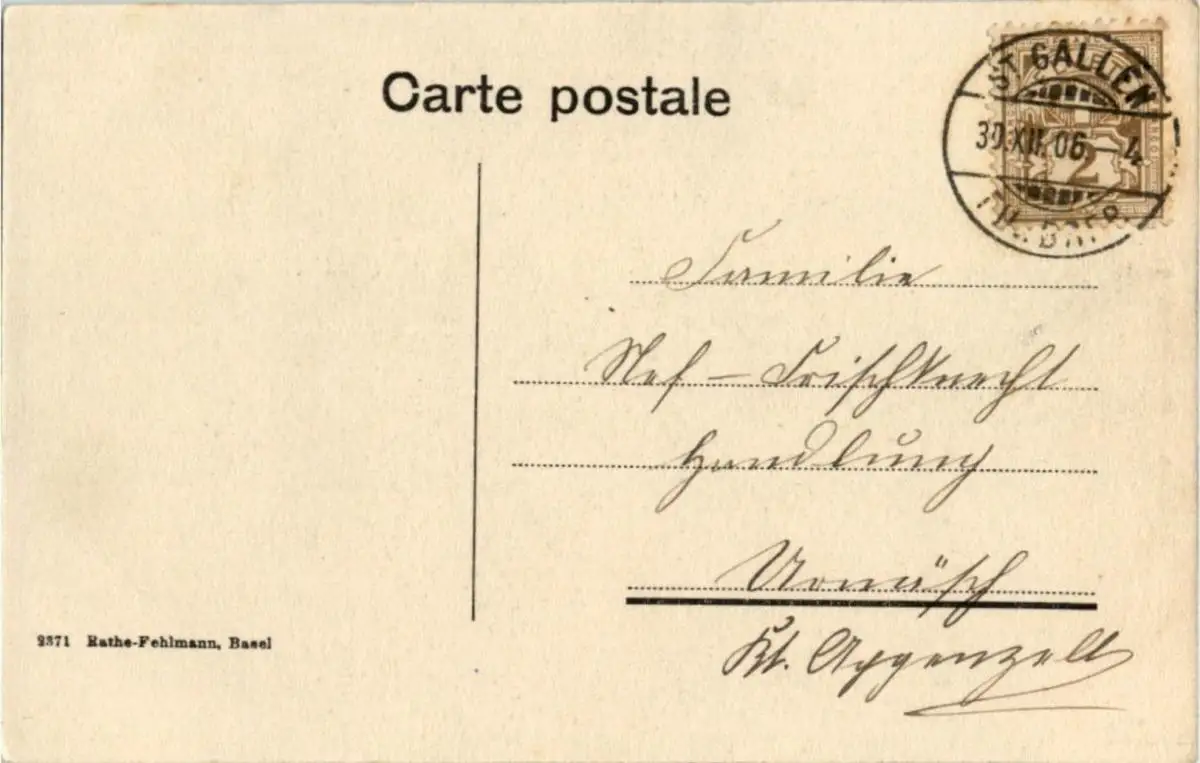 Carte postale
ST. GALLEN
30.XII.06.–4
2
Familie
Nef – Frischknecht
Handlung
Urnäsch
Kt. Appenzell
2371 Rathe-Fehlmann, Basel